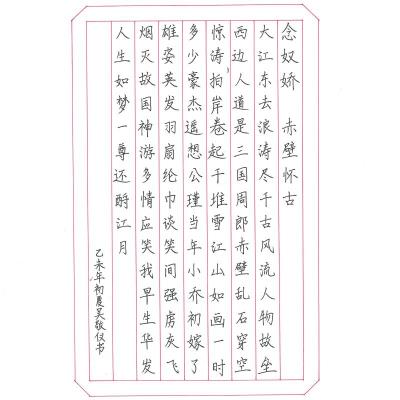 念奴娇 赤壁怀古
大江东去浪涛尽千古风流人物故垒
西边人道是三国周郎赤壁乱石穿空
惊涛拍岸卷起千堆雪江山如画一时
多少豪杰遥想公瑾当年小乔初嫁了
雄姿英发羽扇纶巾谈笑间强虏灰飞
烟灭故国神游多情应笑我早生华发
人生如梦一尊还酹江月
乙未年初夏吴敬仪书